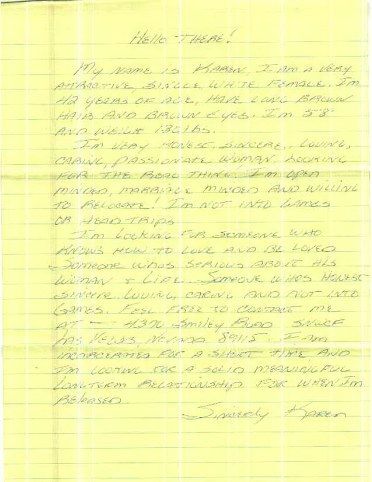 Hello There!
My name is Karen, I am a very
attractive, single white female. I'm
42 years of age, have long brown
hair and brown eyes. I'm 5'8"
and weigh 130 lbs.
I'm very honest, sincere, loving,
caring, passionate woman looking
for the real thing. I'm open
minded, marriage minded and willing
to relocate! I'm not into games
or head trips
I'm looking for someone who
knows how to love and be loved
Someone who's serious about his
woman + life. Someone who's honest
sincere loving caring and not into
games. Feel free to contact me
at - 4370 Smiley Road
Las Vegas, Nevada 89115. I am
incarcerated for a short time and
I'm looking for a solid meaningful
longterm relationship for when I'm
released.
Sincerely Karen